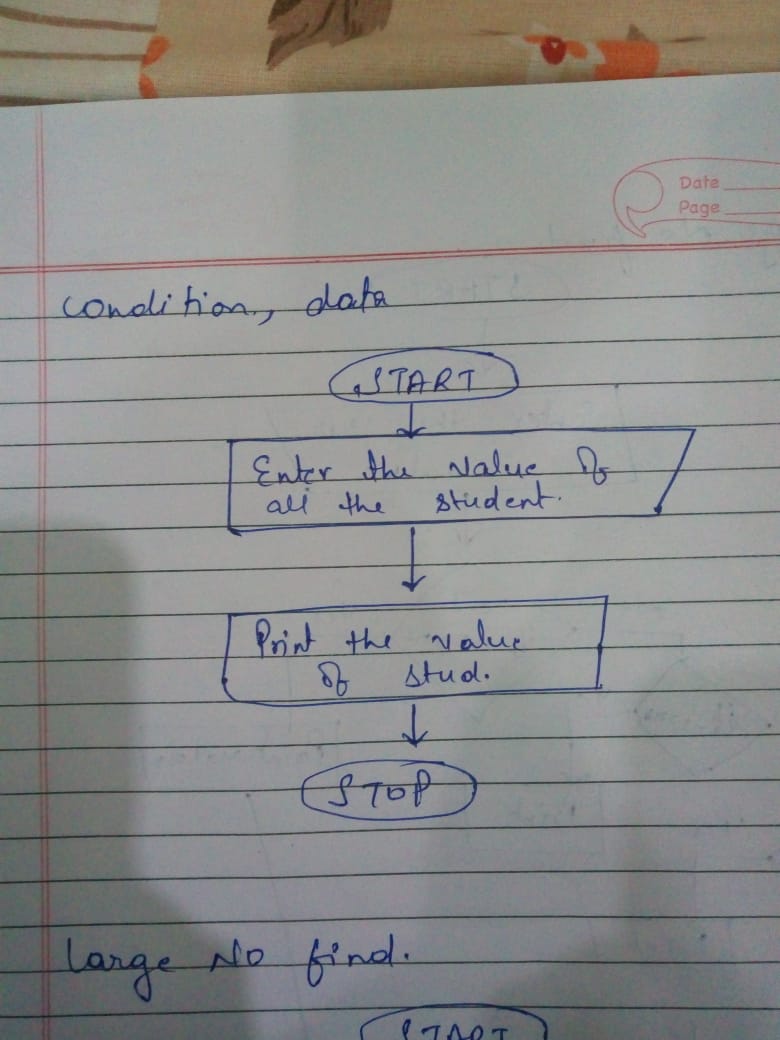 Date
Page
condition, data
START
Enter the value of
all the student.
Print the value
of stud.
STOP
large No find.
START